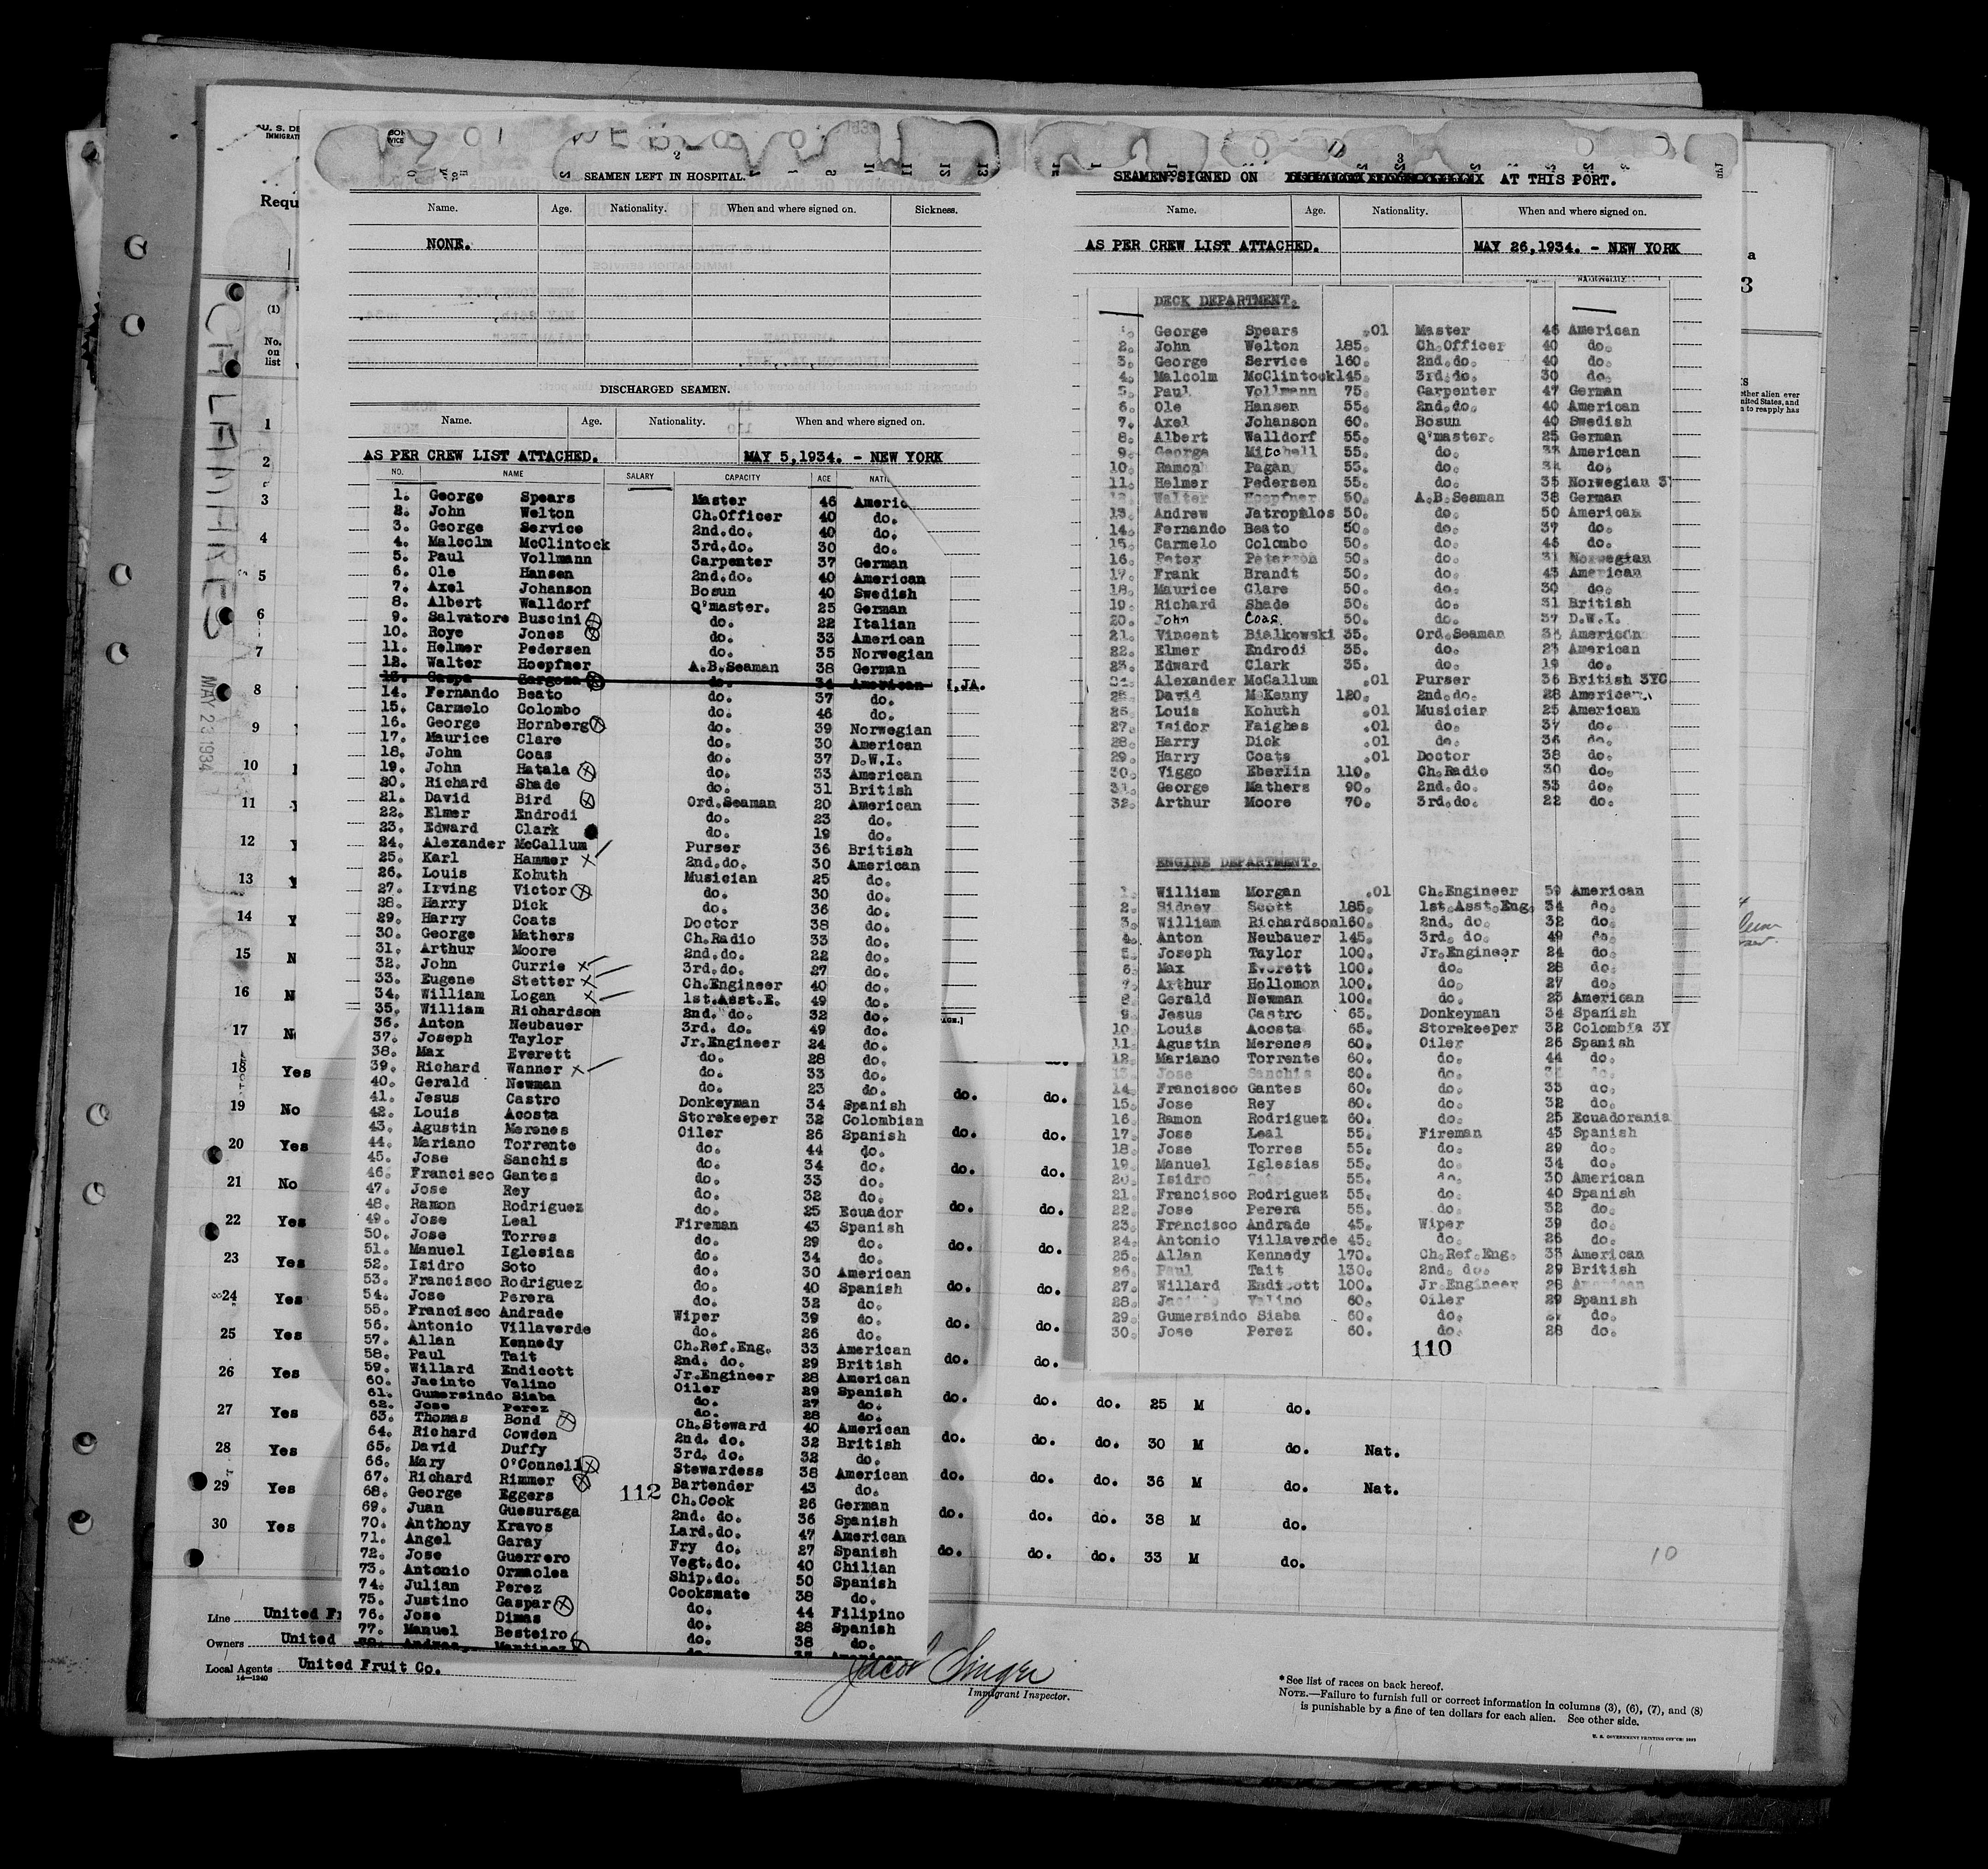 U. S. DE
IMMIGRAT
Requ
(1)
No.
on
list
CALAMARES
MAY 23 1934
2
SEAMEN LEFT IN HOSPITAL.
Name. Age. Nationality. When and where signed on. Sickness.
NONE.
DISCHARGED SEAMEN.
Name. Age. Nationality. When and where signed on.
AS PER CREW LIST ATTACHED. MAY 5,1934. - NEW YORK
NO. NAME SALARY CAPACITY AGE NATI
1. George Spears Master 46 Americ
2. John Welton Ch.Officer 40 do.
3. George Service 2nd.do. 40 do.
4. Malcolm McClintock 3rd.do. 30 do.
5. Paul Vollmann Carpenter 37 German
6. Ole Hansen 2nd.do. 40 American
7. Axel Johanson Bosun 40 Swedish
8. Albert Walldorf Q'master. 25 German
9. Salvatore Buscini do. 22 Italian
10. Roye Jones do. 33 American
11. Helmer Pedersen do. 35 Norwegian
12. Walter Hoepfner A.B.Seaman 38 German
13. Gaspa do. 34 American N,JA.
14. Fernando Beato do. 37 do.
15. Carmelo Colombo do. 46 do.
16. George Hornberg do. 39 Norwegian
17. Maurice Clare do. 30 American
18. John Coas do. 37 D.W.I.
19. John Hatala do. 33 American
20. Richard Shade do. 31 British
21. David Bird Ord.Seaman 20 American
22. Elmer Endrodi do. 23 do.
23. Edward Clark do. 19 do.
24. Alexander McCallum Purser 36 British
25. Karl Hammer 2nd.do. 30 American
26. Louis Kohuth Musician 25 do.
27. Irving Victor do. 30 do.
28. Harry Dick do. 36 do.
29. Harry Coats Doctor 38 do.
30. George Mathers Ch.Radio 33 do.
31. Arthur Moore 2nd.do. 22 do.
32. John Currie 3rd.do. 27 do.
33. Eugene Stetter Ch.Engineer 40 do.
34. William Logan 1st.Asst.E. 49 do.
35. William Richardson 2nd. do. 32 do.
36. Anton Neubauer 3rd. do. 49 do.
37. Joseph Taylor Jr.Engineer 24 do.
38. Max Everett do. 28 do.
39. Richard Wanner do. 33 do.
40. Gerald Newman do. 23 do.
41. Jesus Castro Donkeyman 34 Spanish
42. Louis Acosta Storekeeper 32 Colombian
43. Agustin Merenes Oiler 26 Spanish
44. Mariano Torrente do. 44 do.
45. Jose Sanchis do. 34 do.
46. Francisco Gantes do. 33 do.
47. Jose Rey do. 32 do.
48. Ramon Rodriguez do. 25 Ecuador
49. Jose Leal Fireman 43 Spanish
50. Jose Torres do. 29 do.
51. Manuel Iglesias do. 34 do.
52. Isidro Soto do. 30 American
53. Francisco Rodriguez do. 40 Spanish
54. Jose Perera do. 32 do.
55. Francisco Andrade Wiper 39 do.
56. Antonio Villaverde do. 26 do.
57. Allan Kennedy Ch.Ref.Eng. 33 American
58. Paul Tait 2nd. do. 29 British
59. Willard Endicott Jr.Engineer 28 American
60. Jacinto Valino Oiler 29 Spanish
61. Gumersindo Siaba do. 27 do.
62. Jose Perez do. 28 do.
63. Thomas Bond Ch.Steward 40 American
64. Richard Cowden 2nd. do. 32 British
65. David Duffy 3rd. do. 32 do.
66. Mary O'Connell Stewardess 38 American
67. Richard Rimmer Bartender 43 do.
68. George Eggers Ch.Cook 26 German
69. Juan Guesuraga 2nd. do. 36 Spanish
70. Anthony Kravos Lard.do. 47 American
71. Angel Garay Fry do. 27 Spanish
72. Jose Guerrero Vegt.do. 40 Chilian
73. Antonio Ormaolea Ship.do. 50 Spanish
74. Julian Perez Cooksmate 38 do.
75. Justino Gaspar do. 44 Filipino
76. Jose Dimas do. 28 Spanish
77. Manuel Besteiro do. 38 do.
112
3
SEAMEN SIGNED ON AT THIS PORT.
Name. Age. Nationality. When and where signed on.
AS PER CREW LIST ATTACHED. MAY 26,1934. - NEW YORK
DECK DEPARTMENT.
1. George Spears .01 Master 46 American
2. John Welton 185. Ch.Officer 40 do.
3. George Service 160. 2nd.do. 40 do.
4. Malcolm McClintock145. 3rd.do. 30 do.
5. Paul Vollmann 75. Carpenter 47 German
6. Ole Hansen 55. 2nd.do. 40 American
7. Axel Johanson 60. Bosun 40 Swedish
8. Albert Walldorf 55. Q'master. 25 German
9. George Mitchell 55. do. 33 American
10. Ramon Pagan 55. do. 34 do.
11. Helmer Pedersen 55. do. 35 Norwegian 3Y
12. Walter Hoepfner 50. A.B.Seaman 38 German
13. Andrew Jatropulos 50. do. 50 American
14. Fernando Beato 50. do. 37 do.
15. Carmelo Colombo 50. do. 46 do.
16. Peter Peterson 50. do. 31 Norwegian
17. Frank Brandt 50. do. 43 American
18. Maurice Clare 50. do. 30 do.
19. Richard Shade 50. do. 31 British
20. John Coas. 50. do. 37 D.W.I.
21. Vincent Bialkowski 35. Ord.Seaman American
22. Elmer Endrodi 35. do. 23 American
23. Edward Clark 35. do. 19 do.
24. Alexander McCallum .01 Purser 36 British 3YC
25. David McKenny 120. 2nd.do. 28 American
26. Louis Kohuth .01 Musician 25 American
27. Isidor Faighes .01 do. 37 do.
28. Harry Dick .01 do. 36 do.
29. Harry Coats .01 Doctor 38 do.
30. Viggo Eberlin 110. Ch.Radio 30 do.
31. George Mathers 90. 2nd.do. 33 do.
32. Arthur Moore 70. 3rd.do. 22 do.
ENGINE DEPARTMENT.
1. William Morgan .01 Ch.Engineer 59 American
2. Sidney Scott 185. 1st.Asst.Eng. 34 do.
3. William Richardson160. 2nd. do. 32 do.
4. Anton Neubauer 145. 3rd. do. 49 do.
5. Joseph Taylor 100. Jr.Engineer 24 do.
6. Max Everett 100. do. 28 do.
7. Arthur Hollomon 100. do. 27 do.
8. Gerald Newman 100. do. 23 American
9. Jesus Castro 65. Donkeyman 34 Spanish
10. Louis Acosta 65. Storekeeper 32 Colombia 3Y
11. Agustin Merenes 60. Oiler 26 Spanish
12. Mariano Torrente 60. do. 44 do.
13. Jose Sanchis 60. do. do.
14. Francisco Gantes 60. do. 33 do.
15. Jose Rey 60. do. 32 do.
16. Ramon Rodriguez 60. do. 25 Ecuadorania
17. Jose Leal 55. Fireman 43 Spanish
18. Jose Torres 55. do. 29 do.
19. Manuel Iglesias 55. do. 34 do.
20. Isidro 55. do. 30 American
21. Francisco Rodriguez 55. do. 40 Spanish
22. Jose Perera 55. do. 32 do.
23. Francisco Andrade 45. Wiper 39 do.
24. Antonio Villaverde 45. do. 26 do.
25. Allan Kennedy 170. Ch.Ref.Eng. 33 American
26. Paul Tait 130. 2nd. do. 29 British
27. Willard Endicott 100. Jr.Engineer 28 American
28. Jacinto Valino 60. Oiler 29 Spanish
29. Gumersindo Siaba 60. do. do.
30. Jose Perez 60. do. 28 do.
110
1
2
3
4
5
6
7
8
9
10
11
12
13
14 Y
15 N
16 N
17 N
18 Yes
19 No do. do.
20 Yes do. do.
21 No do. do.
22 Yes do. do.
23 Yes do. do.
24 Yes do. do.
25 Yes do. do.
26 Yes do. do.
27 Yes do. do. do. 25 M do.
28 Yes do. do. do. 30 M do. Nat.
29 Yes do. do. do. 36 M do. Nat.
30 Yes do. do. do. 38 M do.
do. do. do. 33 M do.
10
Line United Fr
Owners United
Local Agents United Fruit Co.
14—1240
Jacob Singer
Immigrant Inspector.
* See list of races on back hereof.
NOTE.—Failure to furnish full or correct information in columns (3), (6), (7), and (8)
is punishable by a fine of ten dollars for each alien. See other side.
U. S. GOVERNMENT PRINTING OFFICE
a
3
ether alien ever
nited States, and
n to reapply has